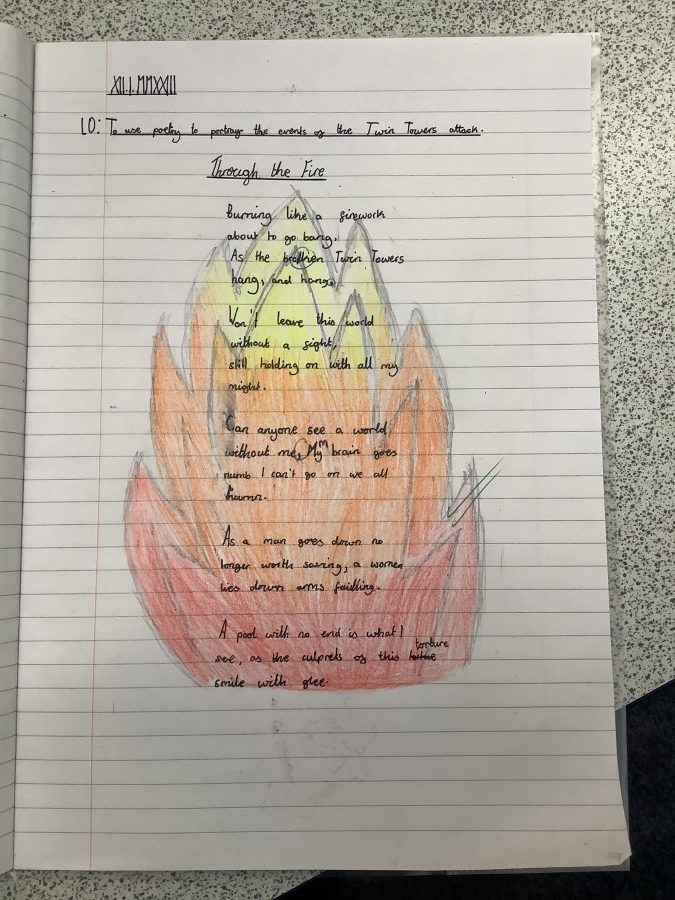 XII.I.MMXXII
LO: To use poetry to portray the events of the Twin Towers attack.
Through the Fire
Burning like a firework
about to go bang.
As the Twin Towers
hang, and hang.
Won't leave this world
without a fight,
still holding on with all my
might.
Can anyone see a world
without me, My brain goes
numb I can't go on we all
As a man goes down no
longer worth saving, a women
lies down arms failling.
A pool with no end is what I
see, as the culprits of this torture
smile with glee.